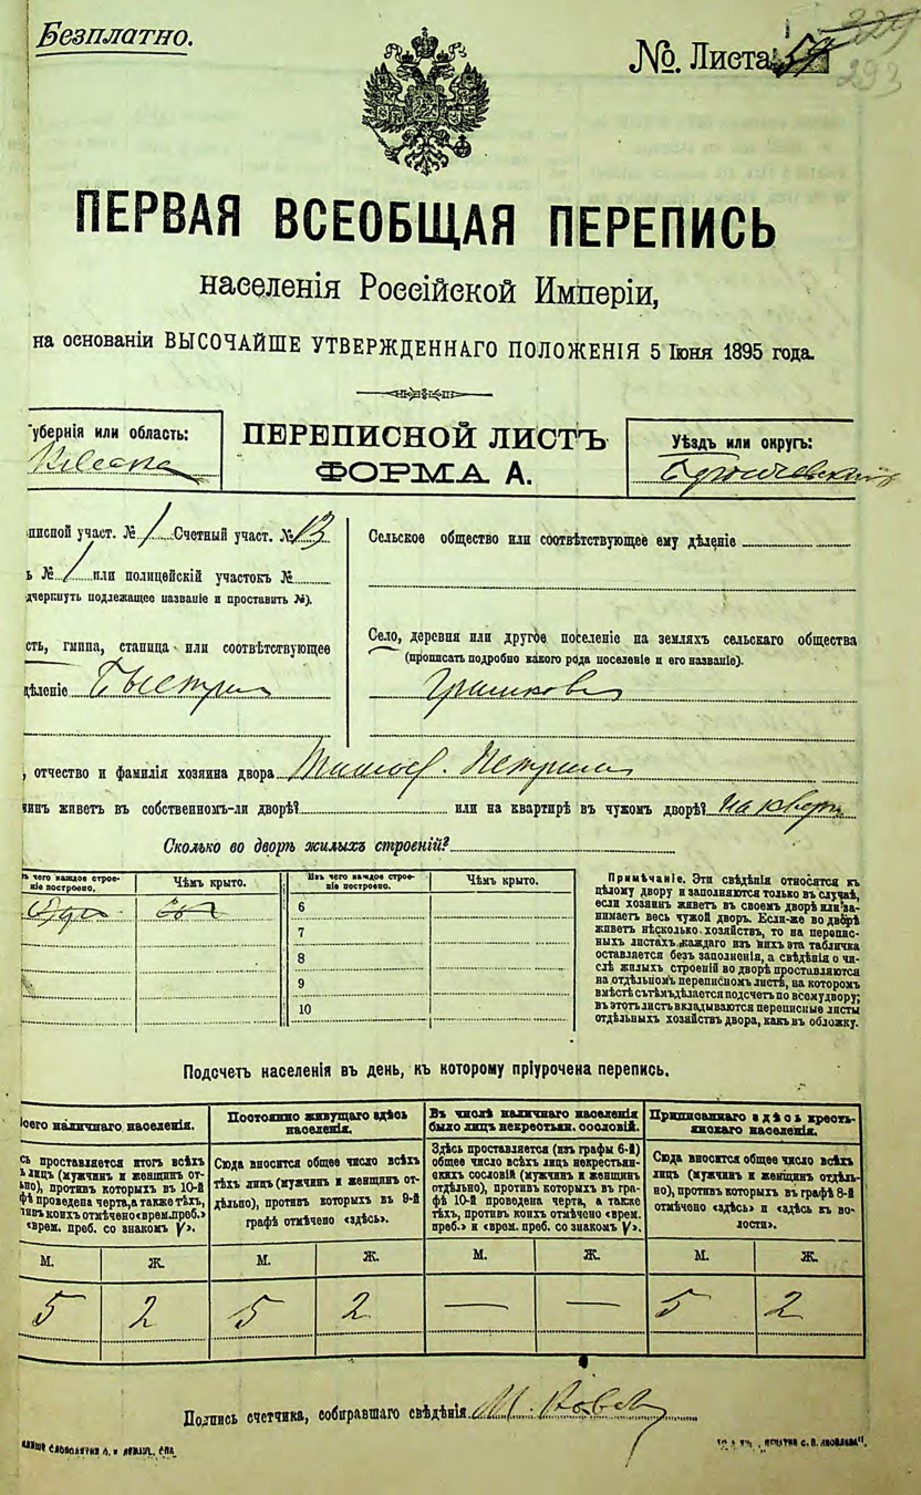 Безплатно.
№. Листа 54
293
ПЕРВАЯ ВСЕОБЩАЯ ПЕРЕПИСЬ
населенія Россійской Имперіи,
на основаніи ВЫСОЧАЙШЕ УТВЕРЖДЕННАГО ПОЛОЖЕНІЯ 5 Іюня 1895 года.
Губернія или область:
ПЕРЕПИСНОЙ ЛИСТЪ
ФОРМА А.
Уѣздъ или округъ:
писной участ. № 1 Счетный участ. № 13
ь № 1 или полицейскій участокъ №
дчеркнуть подлежащее названіе и проставить №).
сть, гмина, станица или соотвѣтствующее
дѣленіе
Сельское общество или соотвѣтствующее ему дѣленіе
Село, деревня или другое поселеніе на земляхъ сельскаго общества
(прописать подробно какого рода поселеніе и его названіе).
, отчество и фамилія хозяина двора
инъ живетъ въ собственномъ-ли дворѣ? или на квартирѣ въ чужомъ дворѣ? на кварт
Сколько во дворѣ жилыхъ строеній?
ъ чего каждое строе-
ніе построено.
Чѣмъ крыто.
Изъ чего каждое строе-
ніе построено.
Чѣмъ крыто.
6
7
8
9
10
Примѣчаніе. Эти свѣдѣнія относятся къ
цѣлому двору и заполняются только въ случаѣ,
если хозяинъ живетъ въ своемъ дворѣ или за-
нимаетъ весь чужой дворъ. Если-же во дворѣ
живетъ нѣсколько хозяйствъ, то на перепис-
ныхъ листахъ каждаго изъ нихъ эта табличка
оставляется безъ заполненія, а свѣдѣнія о чи-
слѣ жилыхъ строеній во дворѣ проставляются
на отдѣльномъ переписномъ листѣ, на которомъ
вмѣстѣ съ тѣмъ дѣлается подсчетъ по всему двору;
въ этотъ листъ вкладываются переписные листы
отдѣльныхъ хозяйствъ двора, какъ въ обложку.
Подсчетъ населенія въ день, къ которому пріурочена перепись.
сего наличнаго населенія.
сь проставляется итогъ всѣхъ
лицъ (мужчинъ и женщинъ от-
ьно), противъ которыхъ въ 10-й
фѣ проведена черта, а также тѣхъ,
тивъ коихъ отмѣчено «врем. преб.»
«врем. преб. со знакомъ V».
М. Ж.
5 2
Постоянно живущаго здѣсь
населенія.
Сюда вносится общее число всѣхъ
тѣхъ лицъ (мужчинъ и женщинъ от-
дѣльно), противъ которыхъ въ 9-й
графѣ отмѣчено «здѣсь».
М. Ж.
5 2
Въ числѣ наличнаго населенія
было лицъ некрестьян. сословій.
Здѣсь проставляется (изъ графы 6-й)
общее число всѣхъ лицъ некрестьян-
скихъ сословій (мужчинъ и женщинъ
отдѣльно), противъ которыхъ въ гра-
фѣ 10-й проведена черта, а также
тѣхъ, противъ коихъ отмѣчено «врем.
преб.» и «врем. преб. со знакомъ V».
М. Ж.
— —
Приписаннаго здѣсь кресть-
янскаго населенія.
Сюда вносится общее число всѣхъ
лицъ (мужчинъ и женщинъ отдѣль-
но), противъ которыхъ въ графѣ 8-й
отмѣчено «здѣсь» и «здѣсь къ во-
лости».
М. Ж.
5 2
Подпись счетчика, собиравшаго свѣдѣнія